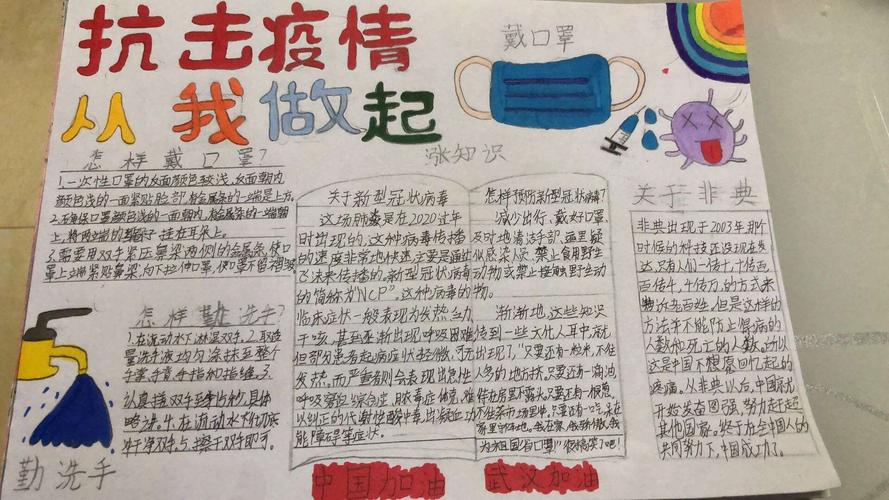 抗击疫情
从我做起
戴口罩
怎样戴口罩?
1.一次性口罩的反面颜色较浅,反面朝内,
颜色浅的一面紧贴脸部,有金属条的一端是上方。
2.确保口罩颜色浅的一面朝内,有金属条的一端朝
上,将两端的绳子挂在耳朵上。
3.需要用双手紧压鼻梁两侧的金属条,使口
罩上端紧贴鼻梁,向下拉伸口罩,使口罩不留褶皱
怎样勤洗手?
1.在流动水下淋湿双手。2.取适
量洗手液均匀涂抹至整个
手掌、手背、手指和指缝。3.
认真搓双手至少15秒,具体
略决。4.在流动水下彻底
冲干净双手。5.擦干双手即可。
勤洗手
涨知识
关于新型冠状病毒
这场肺炎是在2020过年
时出现的,这种病毒传播
的速度非常地快速,主要是通过
飞沫来传播的。新型冠状病毒
的简称为"NCP"。这种病毒的
临床症状一般表现为发热、乏力
干咳,甚至逐渐出现呼吸困难
但部分患者起病症状轻微,可无
发热。而严重者则会表现出急性
呼吸窘迫综合症,脓毒症休克,难
以纠正的代谢性酸中毒,出凝血功
能障碍等症状。
怎样预防新型冠状病毒?
减少出行、戴好口罩、
及时地清洁手部、画里疑
似感染人员、禁止食用野生
动物或禁止接触野生动
物。
渐渐地,这些知识
传到一些文化人耳中,就
出现了,"只要还有一粒米,不往
人多的地方挤,只要还有一滴油
在家里不露头,只要还有一根葱
不往菜市场里冲,只要还有一口气,呆在
家里就好地。我在家,我骄傲,我
为祖国省口罩!"很搞笑了吧!
关于非典
非典出现于2003年,那个
时候的科技还没现在发
达,只有人们一传十,十传百
百传千,千传万,的方式来
告诉老百姓。但是这样的
方法并不能防止得病的
人数和死亡的人数。所以
这是中国不想愿回忆起的
疼痛。从非典以后,中国就
开始发奋图强,努力赶上超
其他国家。终于在全中国人的
共同努力下,中国成功了。
中国加油
武汉加油